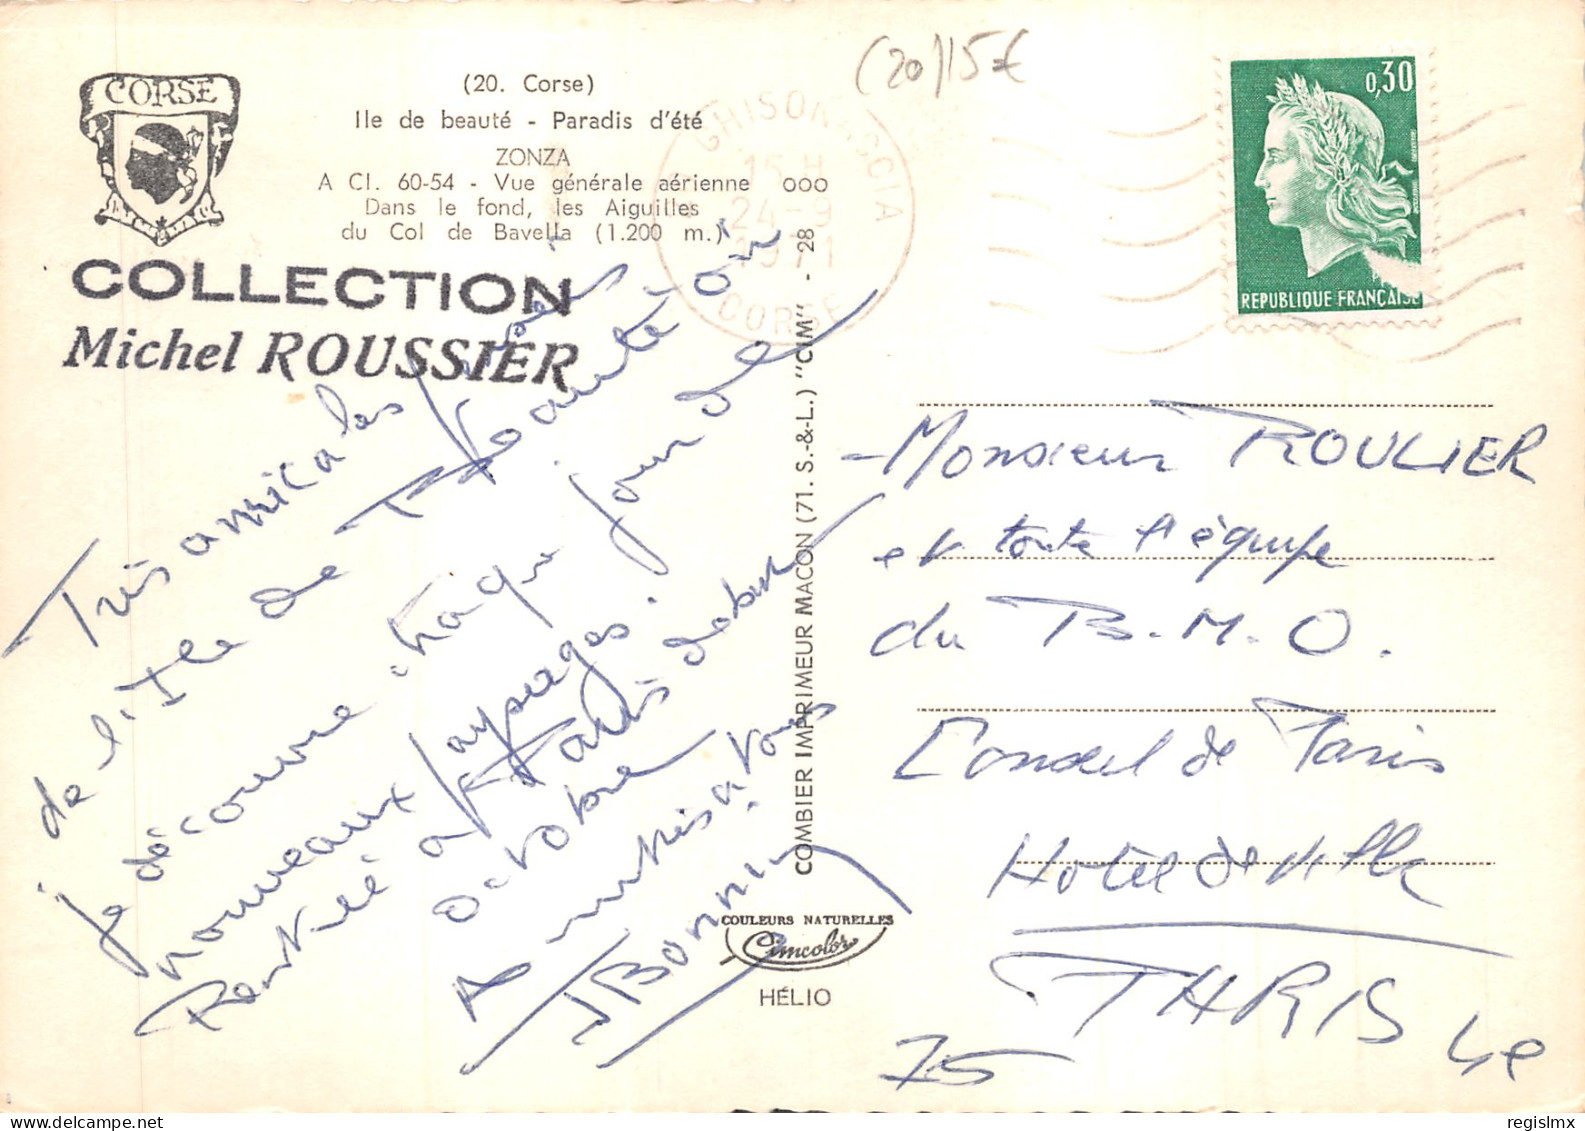 CORSE
(20. Corse)
Ile de beauté - Paradis d'été
ZONZA
A Cl. 60-54 - Vue générale aérienne ooo
Dans le fond, les Aiguilles
du Col de Bavella (1.200 m.)
COLLECTION
Michel ROUSSIER
(20) 15€
GHISONACCIA
15 H
24-9
1971
CORSE
0,30
REPUBLIQUE FRANÇAISE
Très amicales pensées
de l'Ile de Beauté où
je découvre chaque jour de
nouveaux paysages.
Rentré à Paris début
octobre
Amitiés à tous
JBonnin
COMBIER IMPRIMEUR MACON (71. S.-&-L.) "CIM" - 28
COULEURS NATURELLES
Cimcolor
HÉLIO
Monsieur ROULIER
et toute l'équipe
du B.M.O.
Conseil de Paris
Hotel de Ville
PARIS 4e
75
regislmx